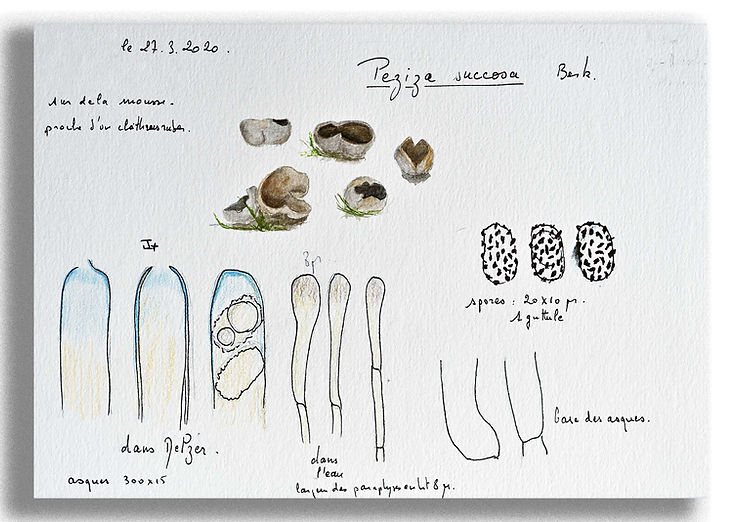 le 27.3.2020.
Peziza succosa Berk.
sur de la mousse.
proche d'un clathrus ruber.
I+
8µ
spores : 20x10 µ.
1 guttule
dans Melzer.
asques 300x15
dans
l'eau
largeur des paraphyses en ht 8 µ.
base des asques.